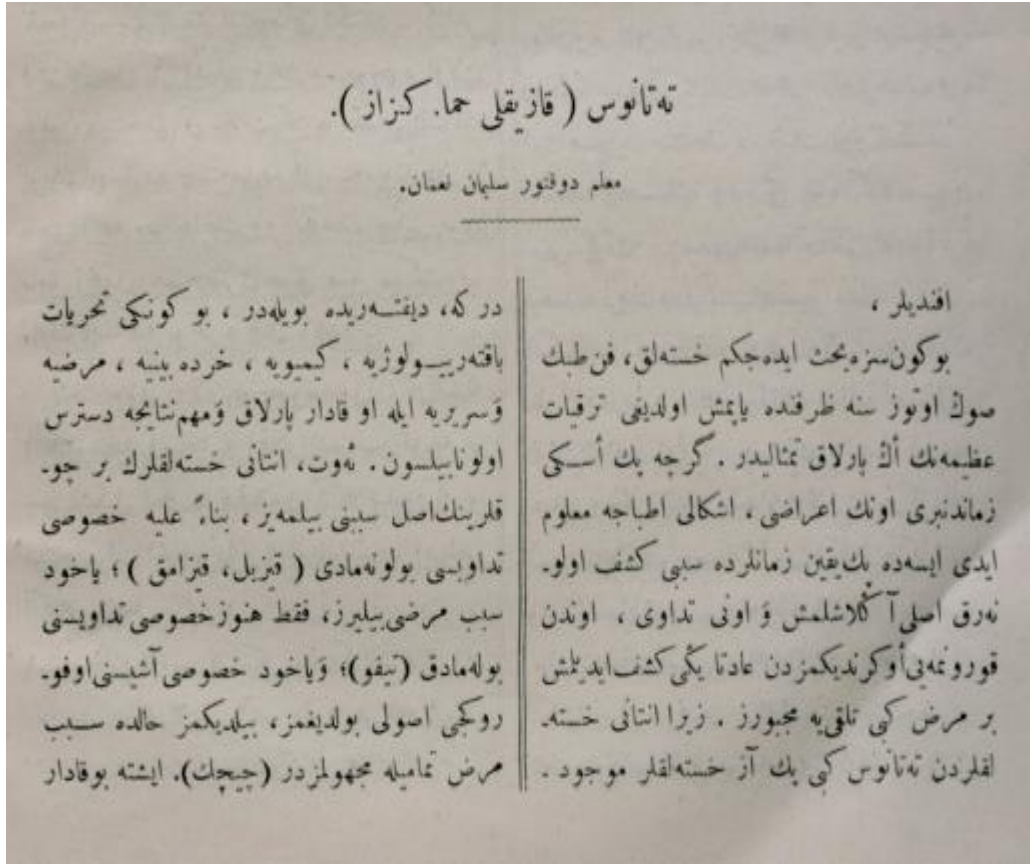 ته‌تانوس ( قازیقلی حما. کزاز ).
معلم دوقتور سلیمان نعمان.
افندیلر ،
بو کون سزه بحث ایده‌جکم خسته‌لق، فن طبك
صوڭ اوتوز سنه ظرفنده یاپمش اولدیغی ترقیات
عظیمه‌نك أڭ پارلاق تمثالیدر . گرچه پك أسـکی
زماندنبری اونك اعراضی ، اشکالی اطباجه معلوم
ایدی ایسه‌ده پك یقین زمانلرده سببی کشف اولو-
نه‌رق اصلی آ ڭلاشلمش وَ اونی تداوی ، اوندن
قورونمه‌یی أوکرندیکمزدن عادتا یڭی کشف ایدیلمش
بر مرض کبی تلقی‌یه مجبورز . زیرا انتانی خسته-
لقلردن ته‌تانوس کبی پك آز خسته‌لقلر موجود -
در که، دیفتـه‌ریده بویله‌در ، بو کونکی تحریات
باقته‌ریـولوژیه ، کیمیویه ، خرده بینیه ، مرضیه
وَسریریه ایله او قادار پارلاق وَمهم نتایجه دسترس
اولونابیلسون . ئه‌وت، انتانی خسته‌لقلرك بر چو-
قلرینك اصل سببنی بیلمه‌یز ، بناءً علیه خصوصی
تداویسی بولونه‌مادی ( قیزیل، قیزامق ) ؛ یاخود
سبب مرضی بیلیرز، فقط هنوز خصوصی تداویسنی
بوله‌مادق (تیفو)؛ وَیاخود خصوصی آشیسنی اوفو-
روکجی اصولی بولدیغمز، بیلدیکمز حالده سـبب
مرض تمامیله مجهولمزدر (چیچك). ایشته بوقادار